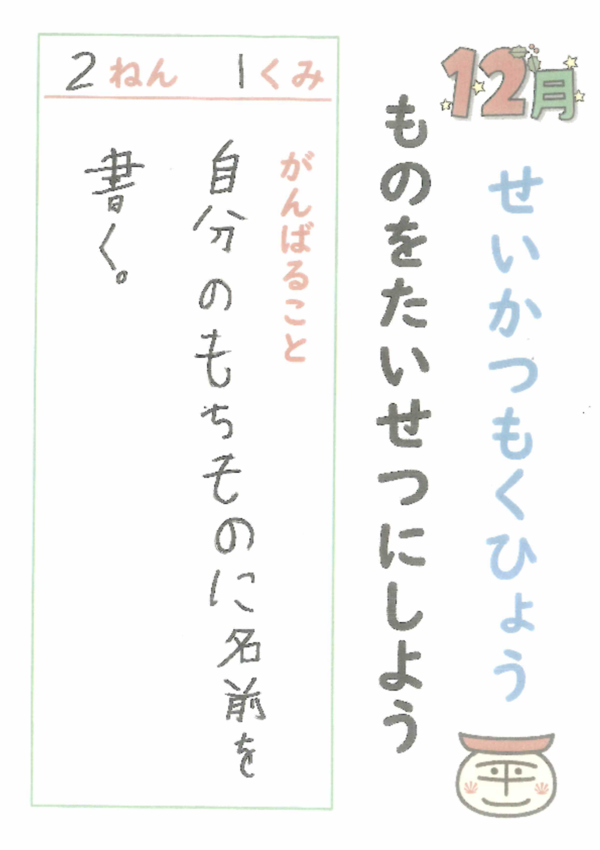 12月
せいかつもくひょう
ものをたいせつにしよう
2ねん 1くみ
がんばること
自分のもちものに名前を
書く。